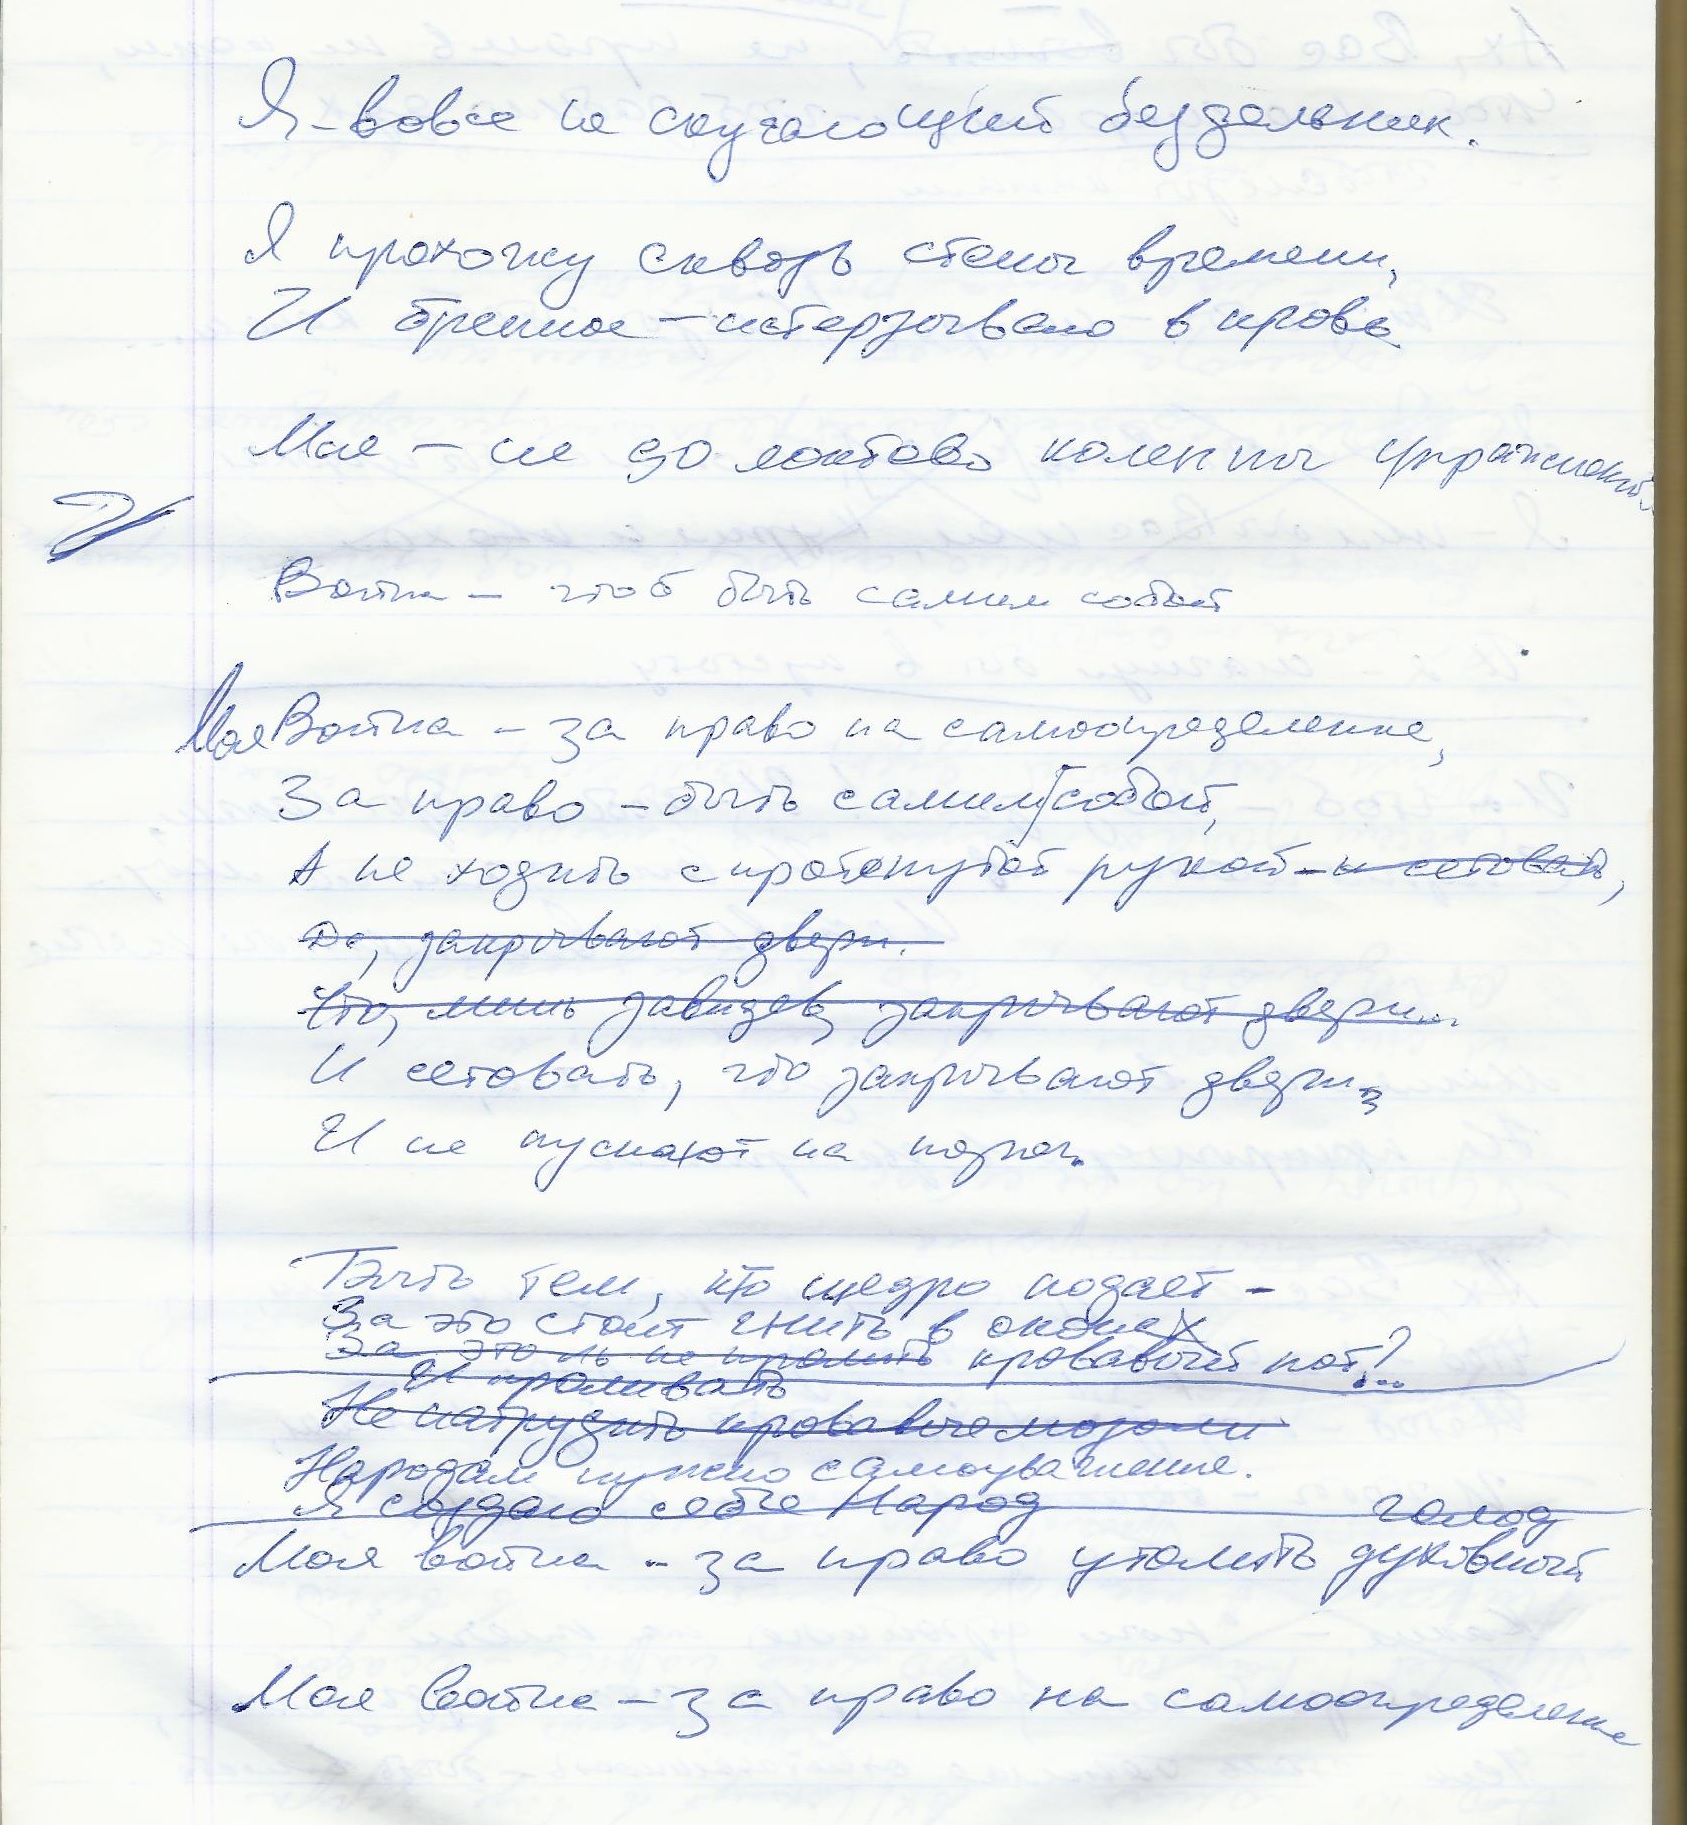 Я – вовсе не скучающий бездельник.
Я прохожу сквозь стены времени,
И бренное – истерзывало в кровь
Мне – не до локтево коленных упражнений.
Война – чтоб быть самим собой
Моя Война – за право на самоопределение,
За право – быть самим собой,
А не ходить с протянутой рукой – и сетовать,
Да, закрывают двери.
Что, лишь завидев, закрывают двери...
И сетовать, что закрывают двери,
И не пускают на порог.
Быть тем, кто щедро подает –
За это стоит гнить в окопах
За это ль не пролить кровавый пот?...
И проливать
Не натрудить кровавые мозоли
Народам нужно самоуважение.
Я создаю себе Народ
голод
Моя война – за право утолить духовный
Моя война – за право на самоопределение